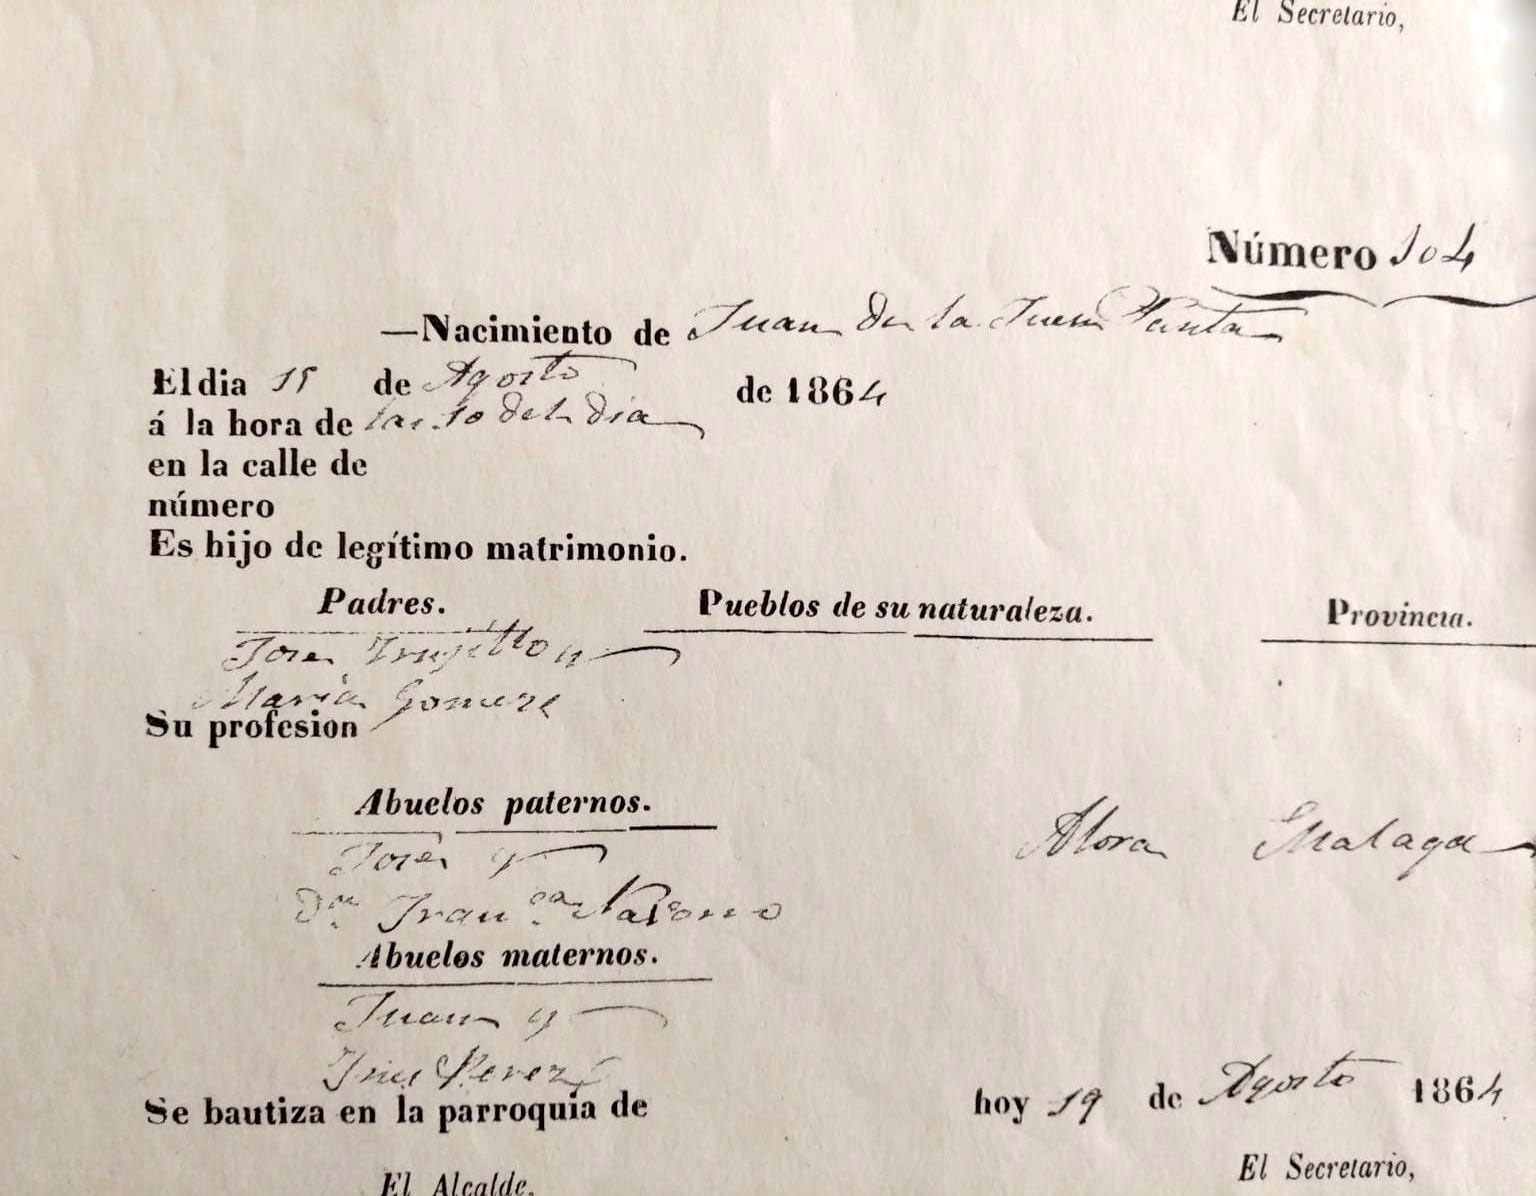 El Secretario,
Número 104
—Nacimiento de Juan de la Fuen Santa
El dia 15 de Agosto de 1864
á la hora de las 10 del dia
en la calle de
número
Es hijo de legítimo matrimonio.
Padres. Pueblos de su naturaleza. Provincia.
José Trujillo y
Maria Gomez
Su profesion
Abuelos paternos.
Alora Malaga
José y
Dª Franᶜᵃ Navarro
Abuelos maternos.
Juan y
Ines Perez
Se bautiza en la parroquia de hoy 19 de Agosto 1864
El Alcalde. El Secretario,